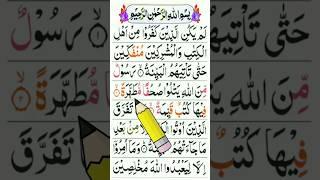 بِسْمِ اللهِ الرَّحْمٰنِ الرَّحِيْمِ
لَمْ يَكُنِ الَّذِيْنَ كَفَرُوْا مِنْ اَهْلِ
الْكِتٰبِ وَالْمُشْرِكِيْنَ مُنْفَكِّيْنَ
حَتّٰى تَاْتِيَهُمُ الْبَيِّنَةُ ۙ رَسُوْلٌ
مِّنَ اللهِ يَتْلُوْا صُحُفًا مُّطَهَّرَةً ۙ
فِيْهَا كُتُبٌ قَيِّمَةٌ ؕ وَمَا تَفَرَّقَ
الَّذِيْنَ اُوْتُوا الْكِتٰبَ اِلَّا مِنْۢ بَعْدِ
مَا جَآءَتْهُمُ الْبَيِّنَةُ ؕ وَمَاۤ اُمِرُوْۤا
اِلَّا لِيَعْبُدُوا اللهَ مُخْلِصِيْنَ